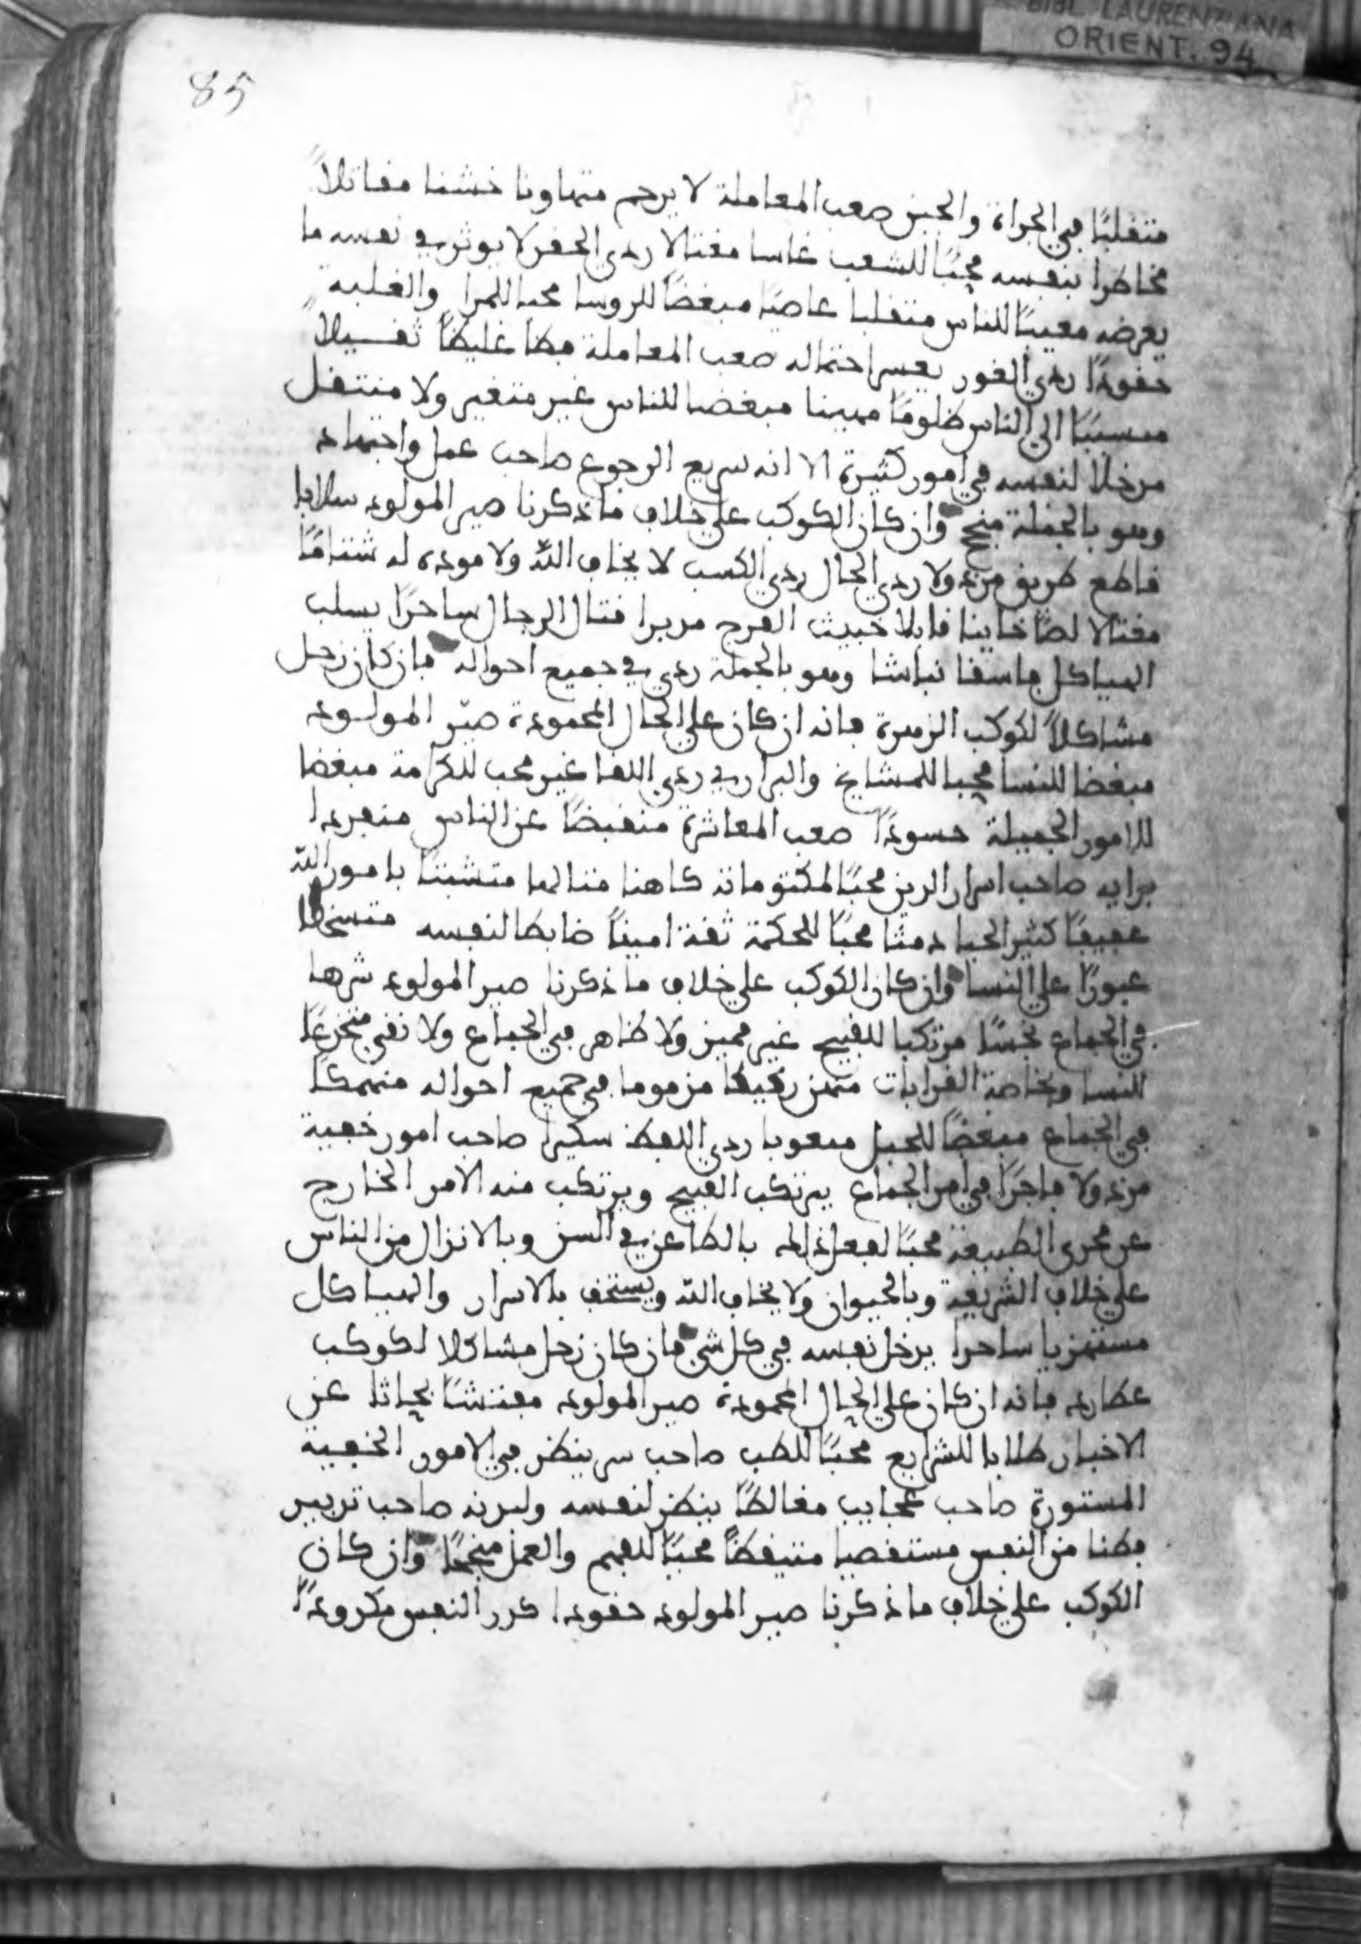 BIBL. LAURENZIANA
ORIENT. 94
85
متقلبًا في الجراة والجبن صعب المعاملة لا يرحم متهاونا خشنا مقاتلاً
مخاطرا بنفسه محبًا للشعب غاسا مغتالا ردي الحقر لا يوثر في نفسه ما
يعرض معيبًا للناس متقلبا عاصيًا مبغضًا للروسا محبا للمرا والغلبة
حقودًا ردي الغور يعسر احتماله صعب المعاملة فظا غليظًا ثقيلاً
مسببًا الى الناس ظلومًا مهينا مبغضا للناس غير متغير ولا منتقل
مدخلا لنفسه في امور كثيرة الا انه سريع الرجوع صاحب عمل واجتهاد
وهو بالجملة منجح وان كان الكوكب على خلاف ما ذكرنا صير المولود سلابا
قاطع طريق مرذولا ردي الحال ردي الكسب لا يخاف الله ولا مودة له شتامًا
مغتالا لصًا خاينا قايلا خبيث الفرج مدبرا قتال الرجال ساحرًا يسلب
الهياكل فاسقا نباشا وهو بالجملة ردي في جميع احواله فان كان زحل
مشاكلاً لكوكب الزهرة فانه ان كان على الحال المحمودة صيّر المولود
مبغضا للنسا محبا للمشايخ والبراري ردي اللقا غير محب للكرامة مبغضا
للامور الجميلة حسودًا صعب المعاشرة منقبضًا عن الناس منفردا
برايه صاحب اسرار الدين محبًا لمكتوماته كاهنا متالها متشبثا بامور الله
عفيفًا كثير الحيا دمثا محبًا للحكمة ثقة امينًا ضابطا لنفسه
غيورًا على النسا وان كان الكوكب على خلاف ما ذكرنا صير المولود شرها
في الجماع نجسًا مرتكبا للقبيح غير مميز ولا طاهر في الجماع ولا نقي مخدعًا
للنسا وبخاصة القرابات مذموما في جميع احواله منهمكًا
في الجماع مبغضًا للجميل معوبا ردي اللفظ سكيرا صاحب امور خفية
مرذولا فاجرًا في امر الجماع يرتكب القبيح ويرتكب منه الامر الخارج
عن مجرى الطبيعة محبًا لفعل ذلك بالطاعن في السن وبالانزال من الناس
على خلاف الشريعة وبالحيوان ولا يخاف الله ويستخف بالاسرار والهياكل
مستهزيا ساحرا يدخل نفسه في كل شي فان كان زحل مشاكلا لكوكب
عطارد فانه ان كان على الحال المحمودة صير المولود مفتشًا بحاثا عن
الاخبار طلابا للشرايع محبًا للطب صاحب سر ينظر في الامور الخفية
المستورة صاحب عجايب مغالطًا ينظر لنفسه صاحب تدبير
فطنا من النفس مستقصيا متيقظًا محبًا للفهم والعمل منجحًا وان كان
الكوكب على خلاف ما ذكرنا صير المولود حقودا كدر النفس مكرودًا